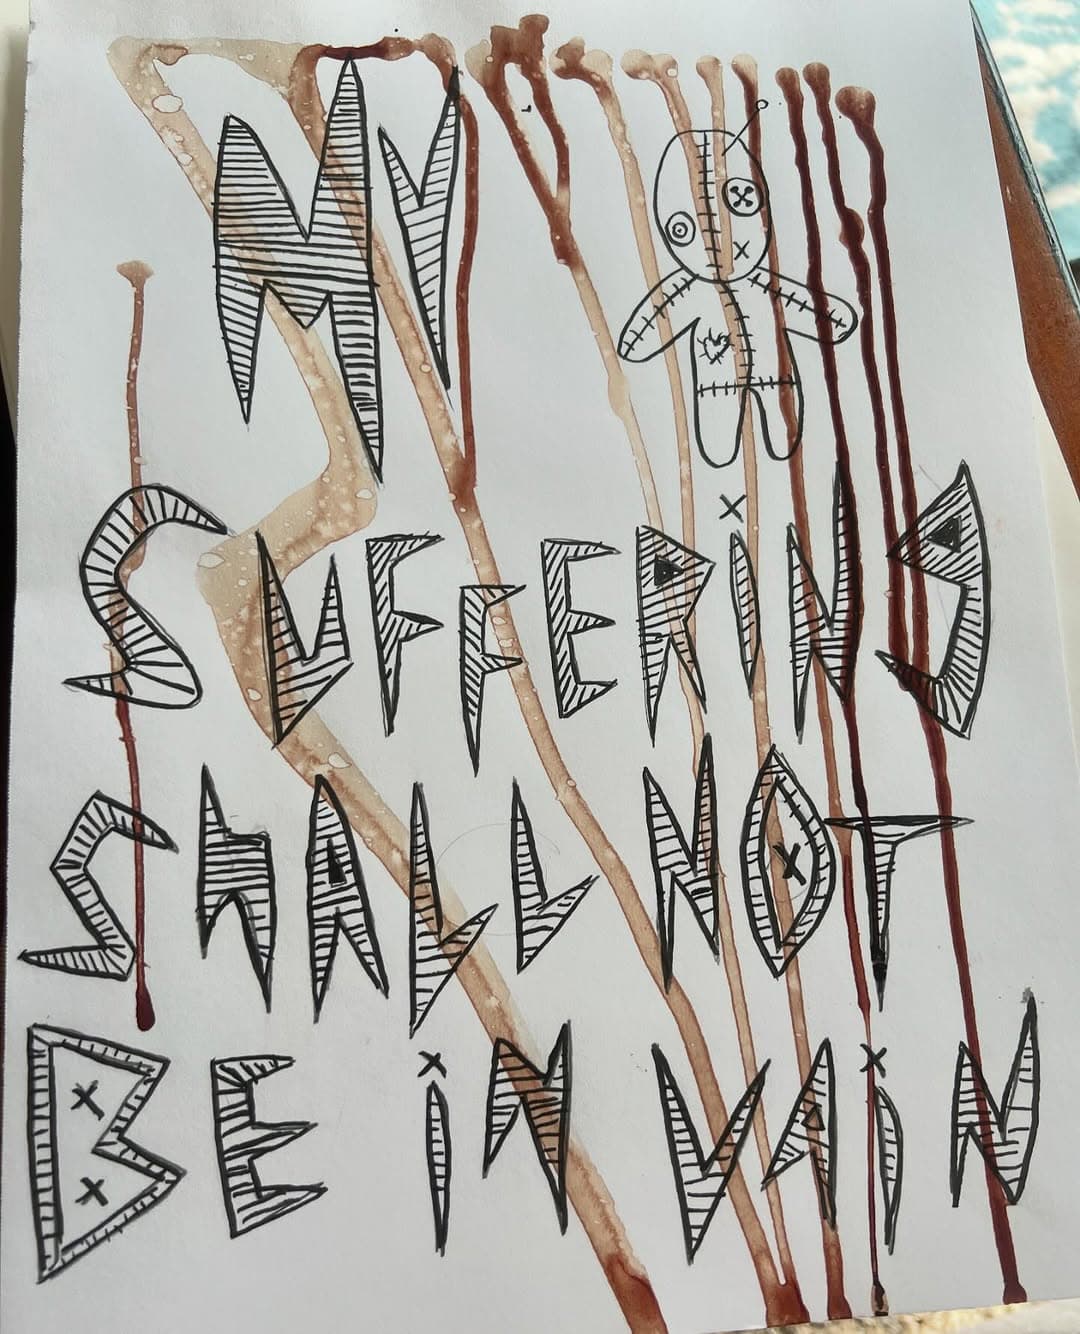 MY
SUFFERiNG
SHALL NOT
BE iN VAiN